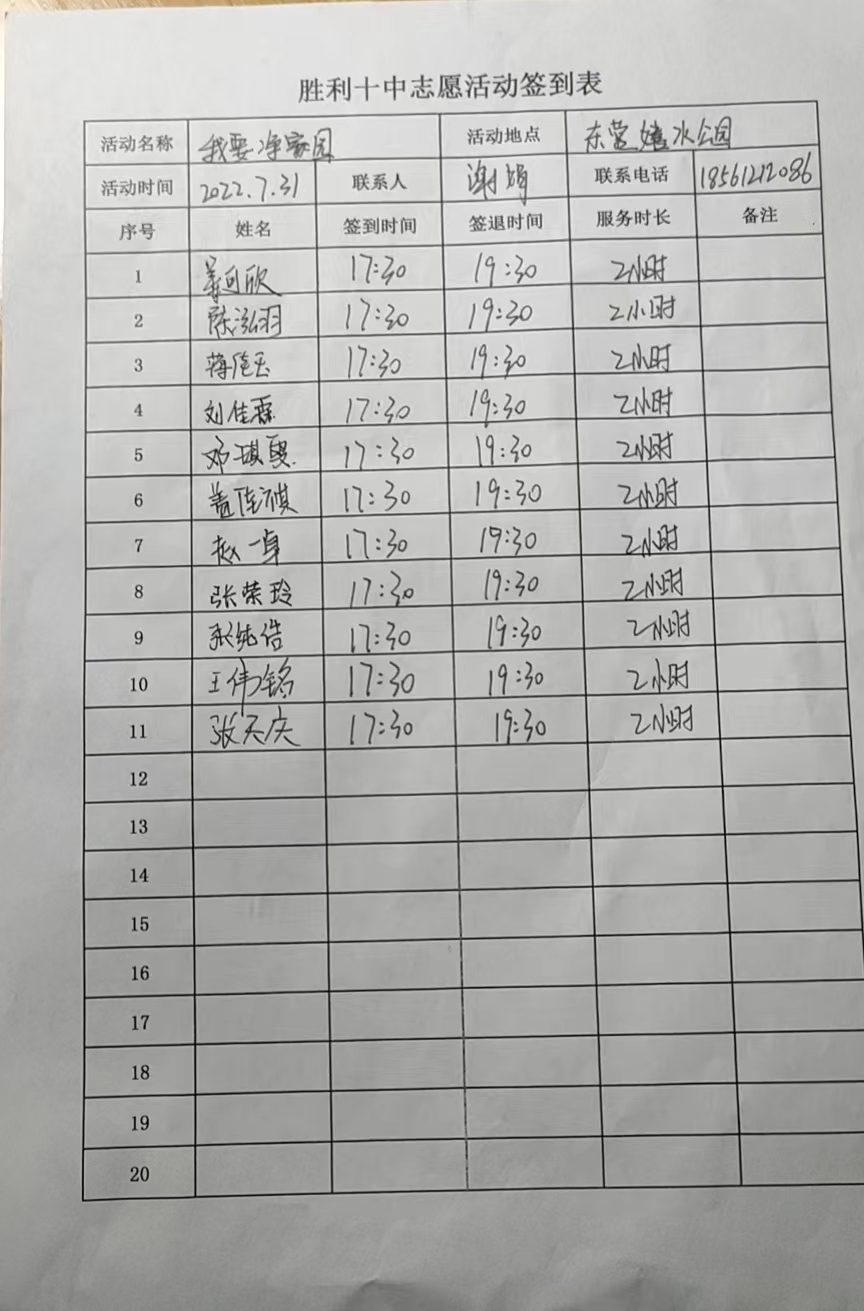 胜利十中志愿活动签到表
活动名称 我要净家园 活动地点 东营嬉水公园
活动时间 2022.7.31 联系人 谢娟 联系电话 18561212086
序号 姓名 签到时间 签退时间 服务时长 备注
1 姜可欣 17:30 19:30 2小时
2 陈泓羽 17:30 19:30 2小时
3 蒋 17:30 19:30 2小时
4 刘佳霖 17:30 19:30 2小时
5 邓琪 17:30 19:30 2小时
6 盖佳祺 17:30 19:30 2小时
7 赵一卓 17:30 19:30 2小时
8 张荣玲 17:30 19:30 2小时
9 张纯浩 17:30 19:30 2小时
10 王伟铭 17:30 19:30 2小时
11 张天庆 17:30 19:30 2小时
12
13
14
15
16
17
18
19
20